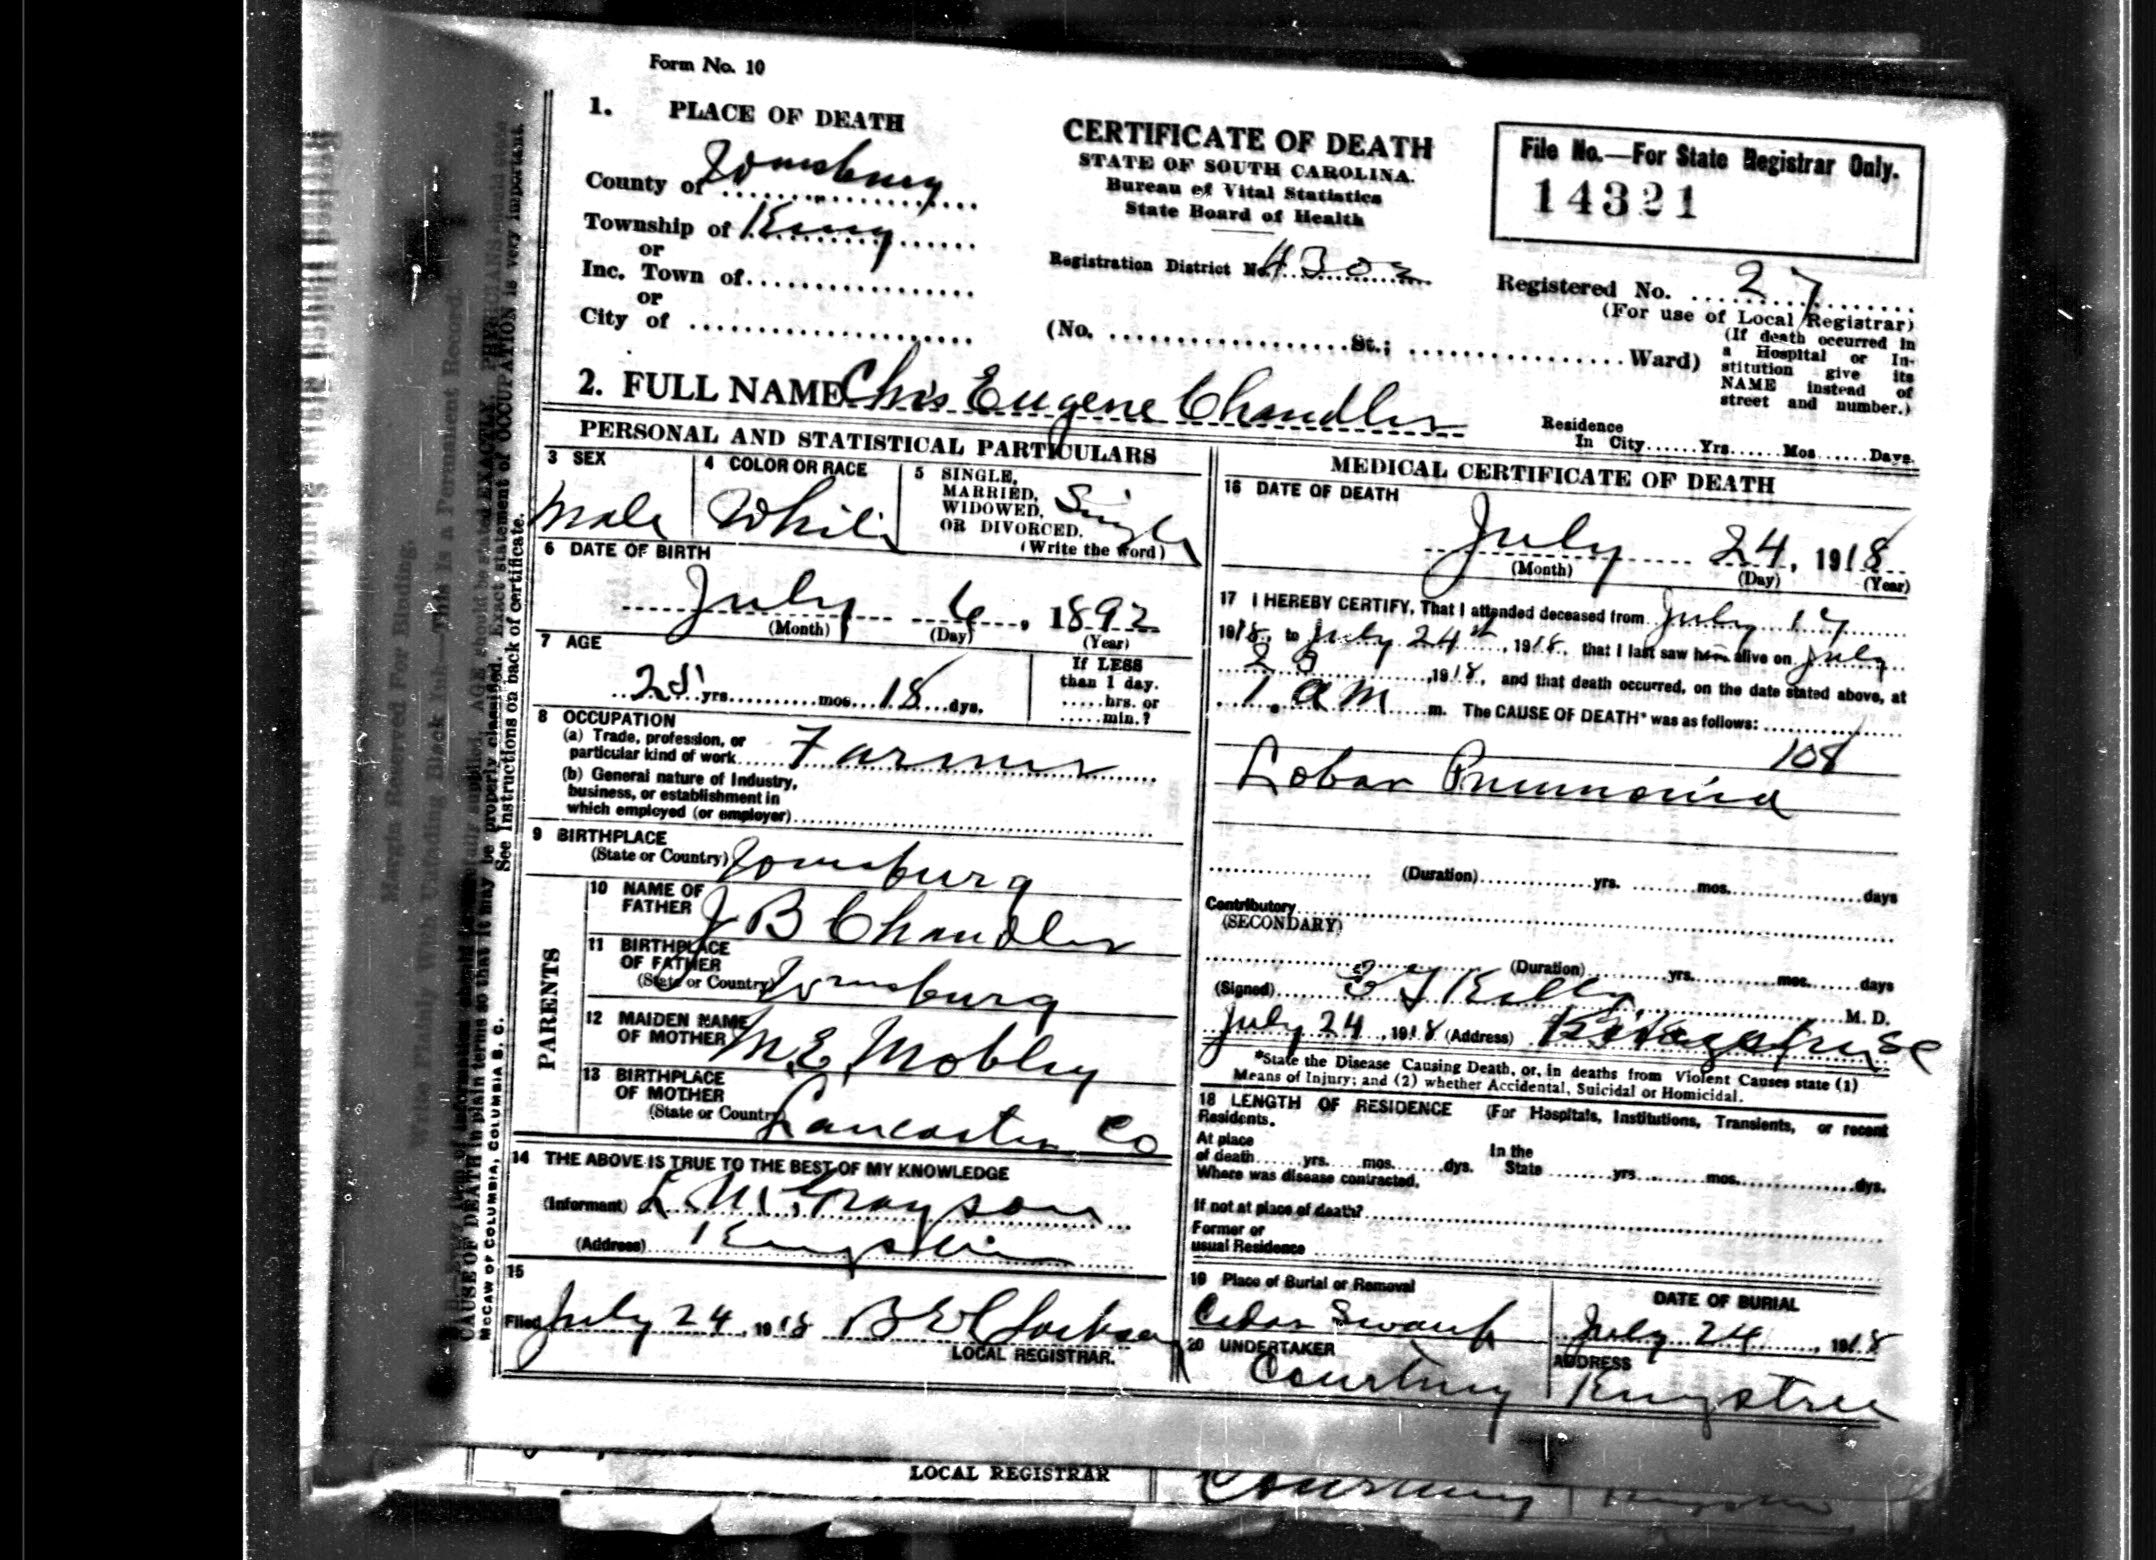 Form No. 10
1. PLACE OF DEATH
County of Wmsburg
Township of King
or
Inc. Town of
or
City of
CERTIFICATE OF DEATH
STATE OF SOUTH CAROLINA.
Bureau of Vital Statistics
State Board of Health
Registration District No. 4302
(No. St.; Ward)
File No.—For State Registrar Only.
14321
Registered No. 27
(For use of Local Registrar)
(If death occurred in
a Hospital or In-
stitution give its
NAME instead of
street and number.)
2. FULL NAME Chis Eugene Chandler
Residence
In City Yrs. Mos. Days.
PERSONAL AND STATISTICAL PARTICULARS
3 SEX
Male
4 COLOR OR RACE
White
5 SINGLE,
MARRIED,
WIDOWED,
OR DIVORCED.
(Write the word)
Single
6 DATE OF BIRTH
July 6, 1892
(Month) (Day) (Year)
7 AGE
25 yrs. mos. 18 dys.
If LESS
than 1 day.
hrs. or
min.?
8 OCCUPATION
(a) Trade, profession, or
particular kind of work Farmer
(b) General nature of Industry,
business, or establishment in
which employed (or employer)
9 BIRTHPLACE
(State or Country) Wmsburg
PARENTS
10 NAME OF
FATHER J B Chandler
11 BIRTHPLACE
OF FATHER
(State or Country) Wmsburg
12 MAIDEN NAME
OF MOTHER M. E. Mobley
13 BIRTHPLACE
OF MOTHER
(State or Country) Lancaster Co
14 THE ABOVE IS TRUE TO THE BEST OF MY KNOWLEDGE
(Informant) L. M. Grayson
(Address) Kingstree
15
Filed July 24, 1918 Jackson
LOCAL REGISTRAR.
MEDICAL CERTIFICATE OF DEATH
16 DATE OF DEATH
July 24, 1918
(Month) (Day) (Year)
17 I HEREBY CERTIFY, That I attended deceased from July 17
1918, to July 24th, 1918, that I last saw him alive on July
23, 1918, and that death occurred, on the date stated above, at
1 a m m. The CAUSE OF DEATH* was as follows:
108
Lobar Pneumonia
(Duration) yrs. mos. days
Contributory
(SECONDARY)
(Duration) yrs. mos. days
(Signed) Kelly, M. D.
July 24, 1918 (Address) Kingstree SC
*State the Disease Causing Death, or, in deaths from Violent Causes state (1)
Means of Injury; and (2) whether Accidental, Suicidal or Homicidal.
18 LENGTH OF RESIDENCE (For Hospitals, Institutions, Transients, or recent
Residents.
At place
of death yrs. mos. dys.
In the
State yrs. mos. dys.
Where was disease contracted,
If not at place of death?
Former or
usual Residence
19 Place of Burial or Removal
Cedar Swamp
DATE OF BURIAL
July 24, 1918
20 UNDERTAKER
Courtney
ADDRESS
Kingstree
LOCAL REGISTRAR
Courtney
Margin Reserved For Binding.
Write Plainly With Unfading Black Ink—This Is a Permanent Record.
AGE should be stated EXACTLY. PHYSICIANS should state
CAUSE OF DEATH in plain terms so that it may be properly classified. Exact statement of OCCUPATION is very important.
See Instructions on back of certificate.
McCAW OF COLUMBIA, COLUMBIA S. C.